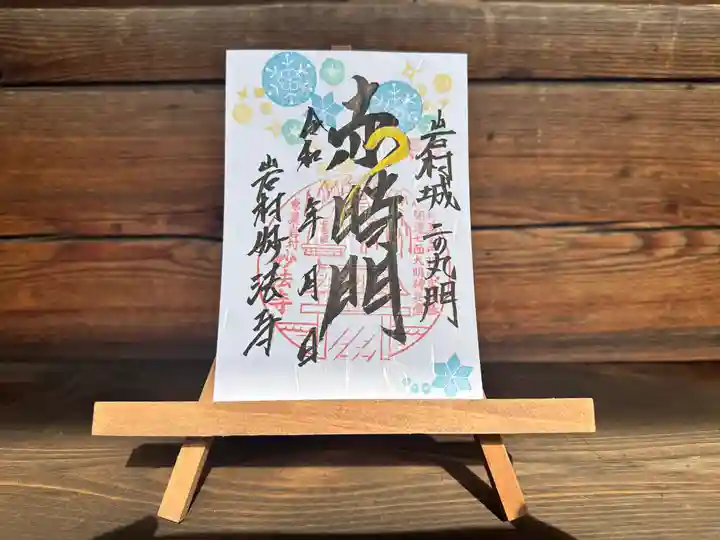 岩村城 二の丸門
赤時門
令和 年 月 日
岩村妙法寺